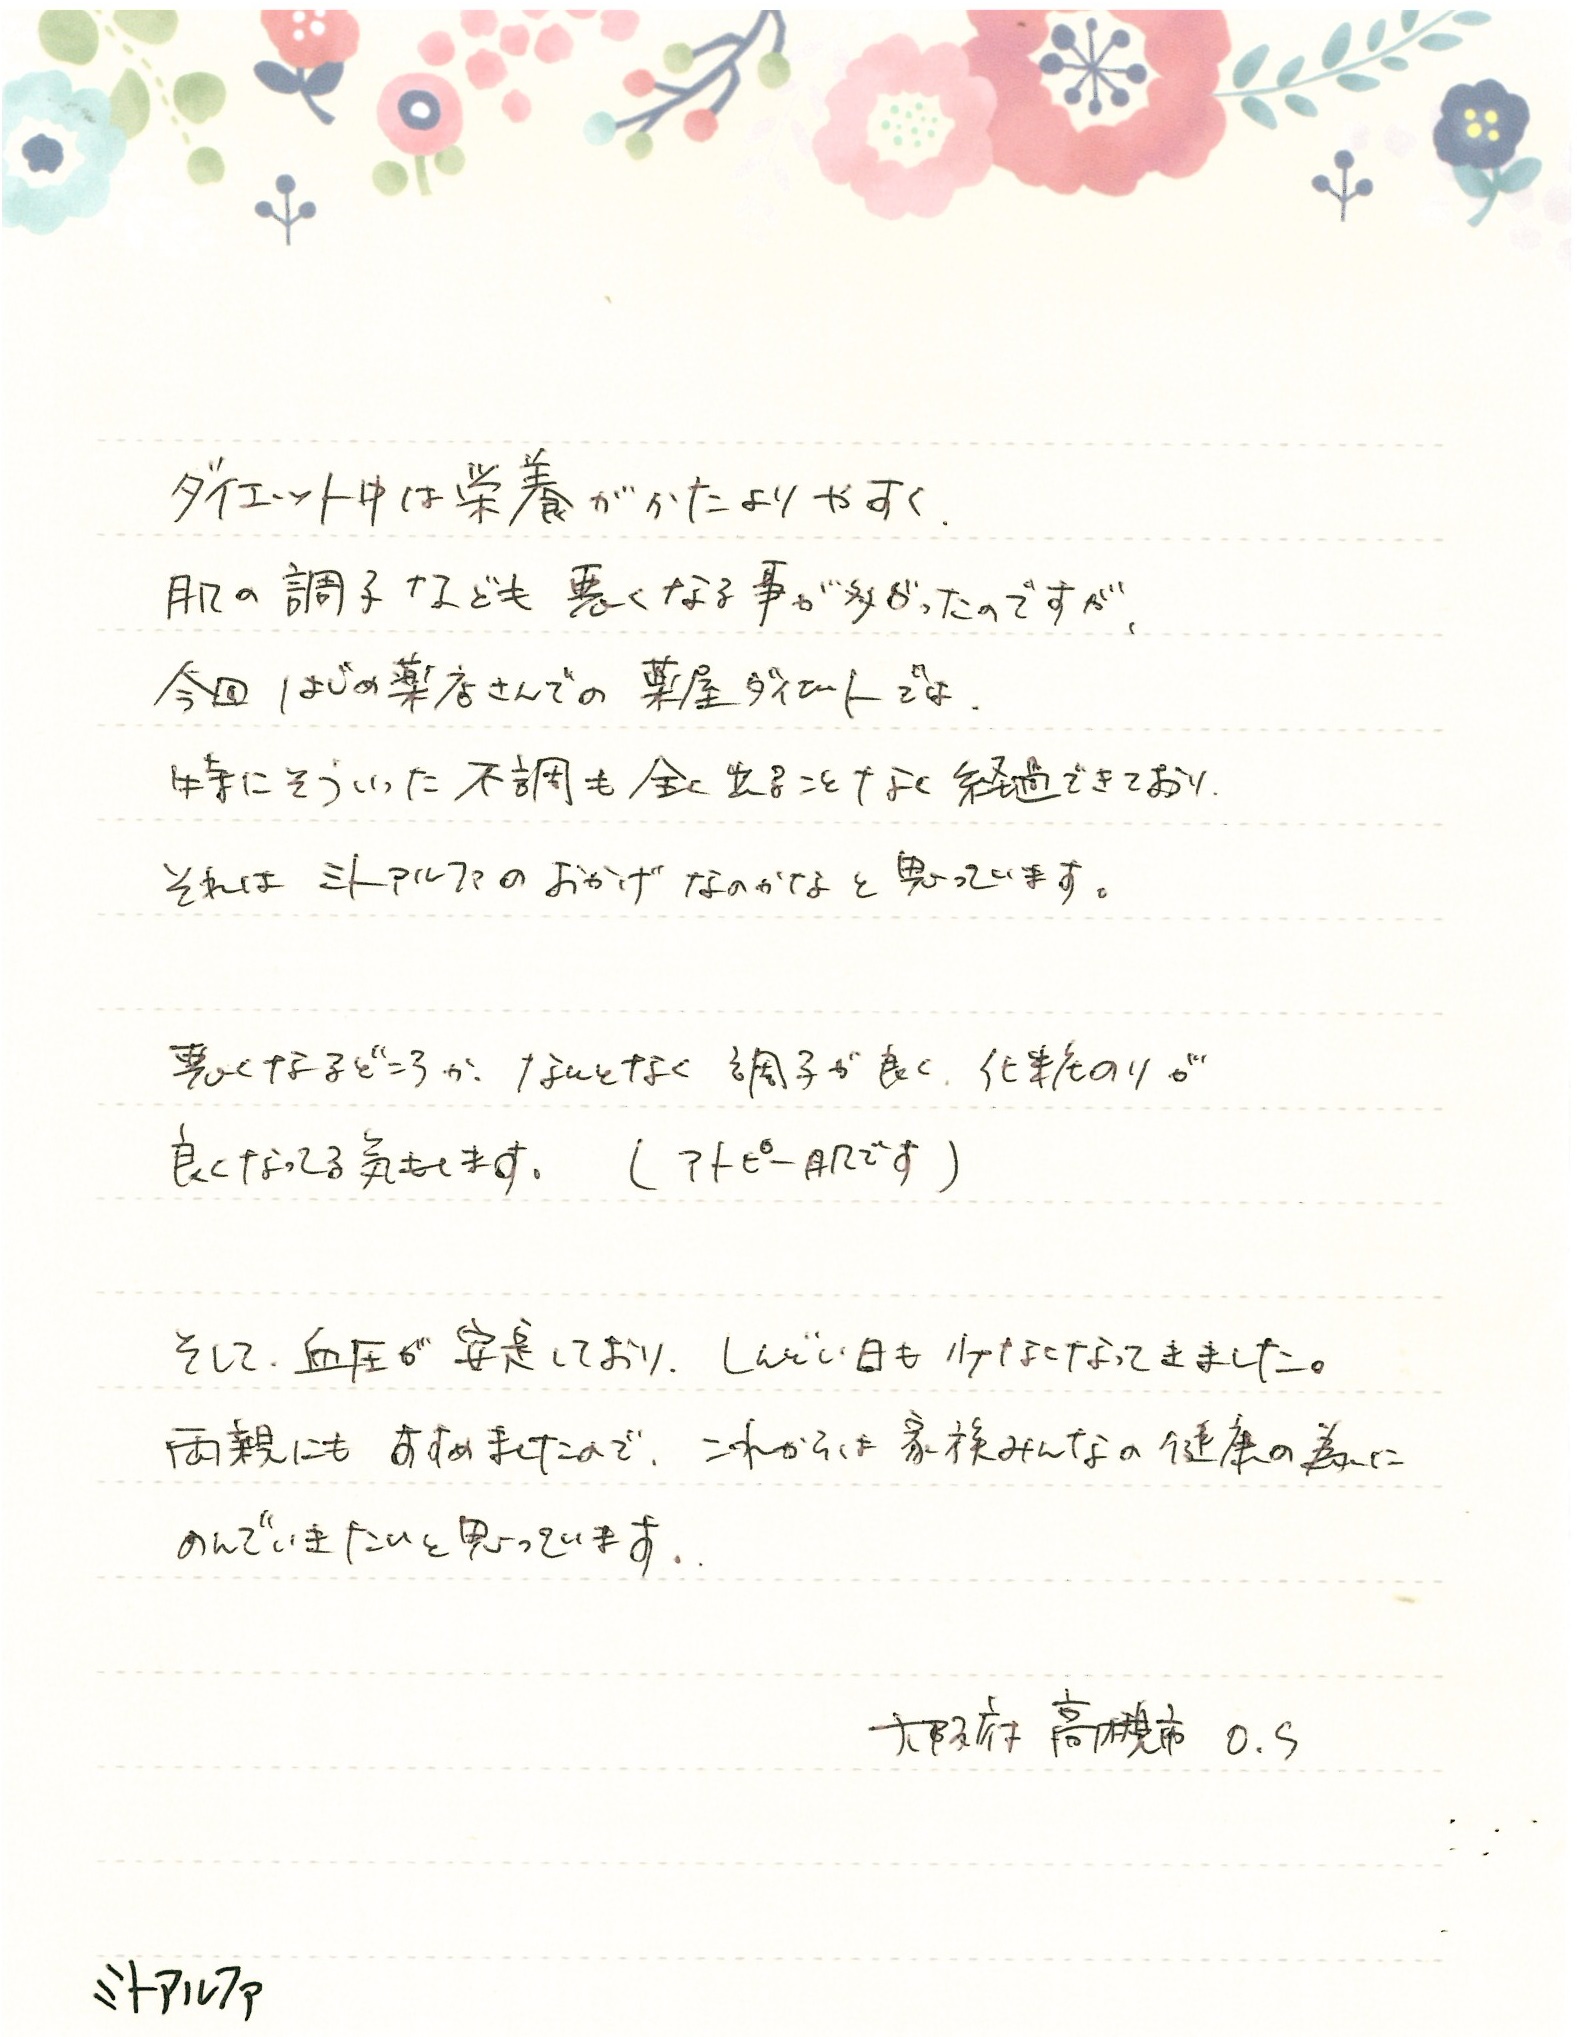 ダイエット中は栄養がかたよりやすく、
肌の調子なども悪くなる事が多かったのですが、
今回はじめ薬店さんでの薬屋ダイエットでは、
特にそういった不調も全く出ることなく経過できており、
それはミトアルファのおかげなのかなと思っています。
悪くなるどころか、なんとなく調子が良く、化粧のりが
良くなってる気もします。（アトピー肌です）
そして、血圧が安定しており、しんどい日も少なくなってきました。
両親にもすすめましたので、これからは家族みんなの健康の為に
のんでいきたいと思っています。
大阪府高槻市 O.S
ミトアルファ